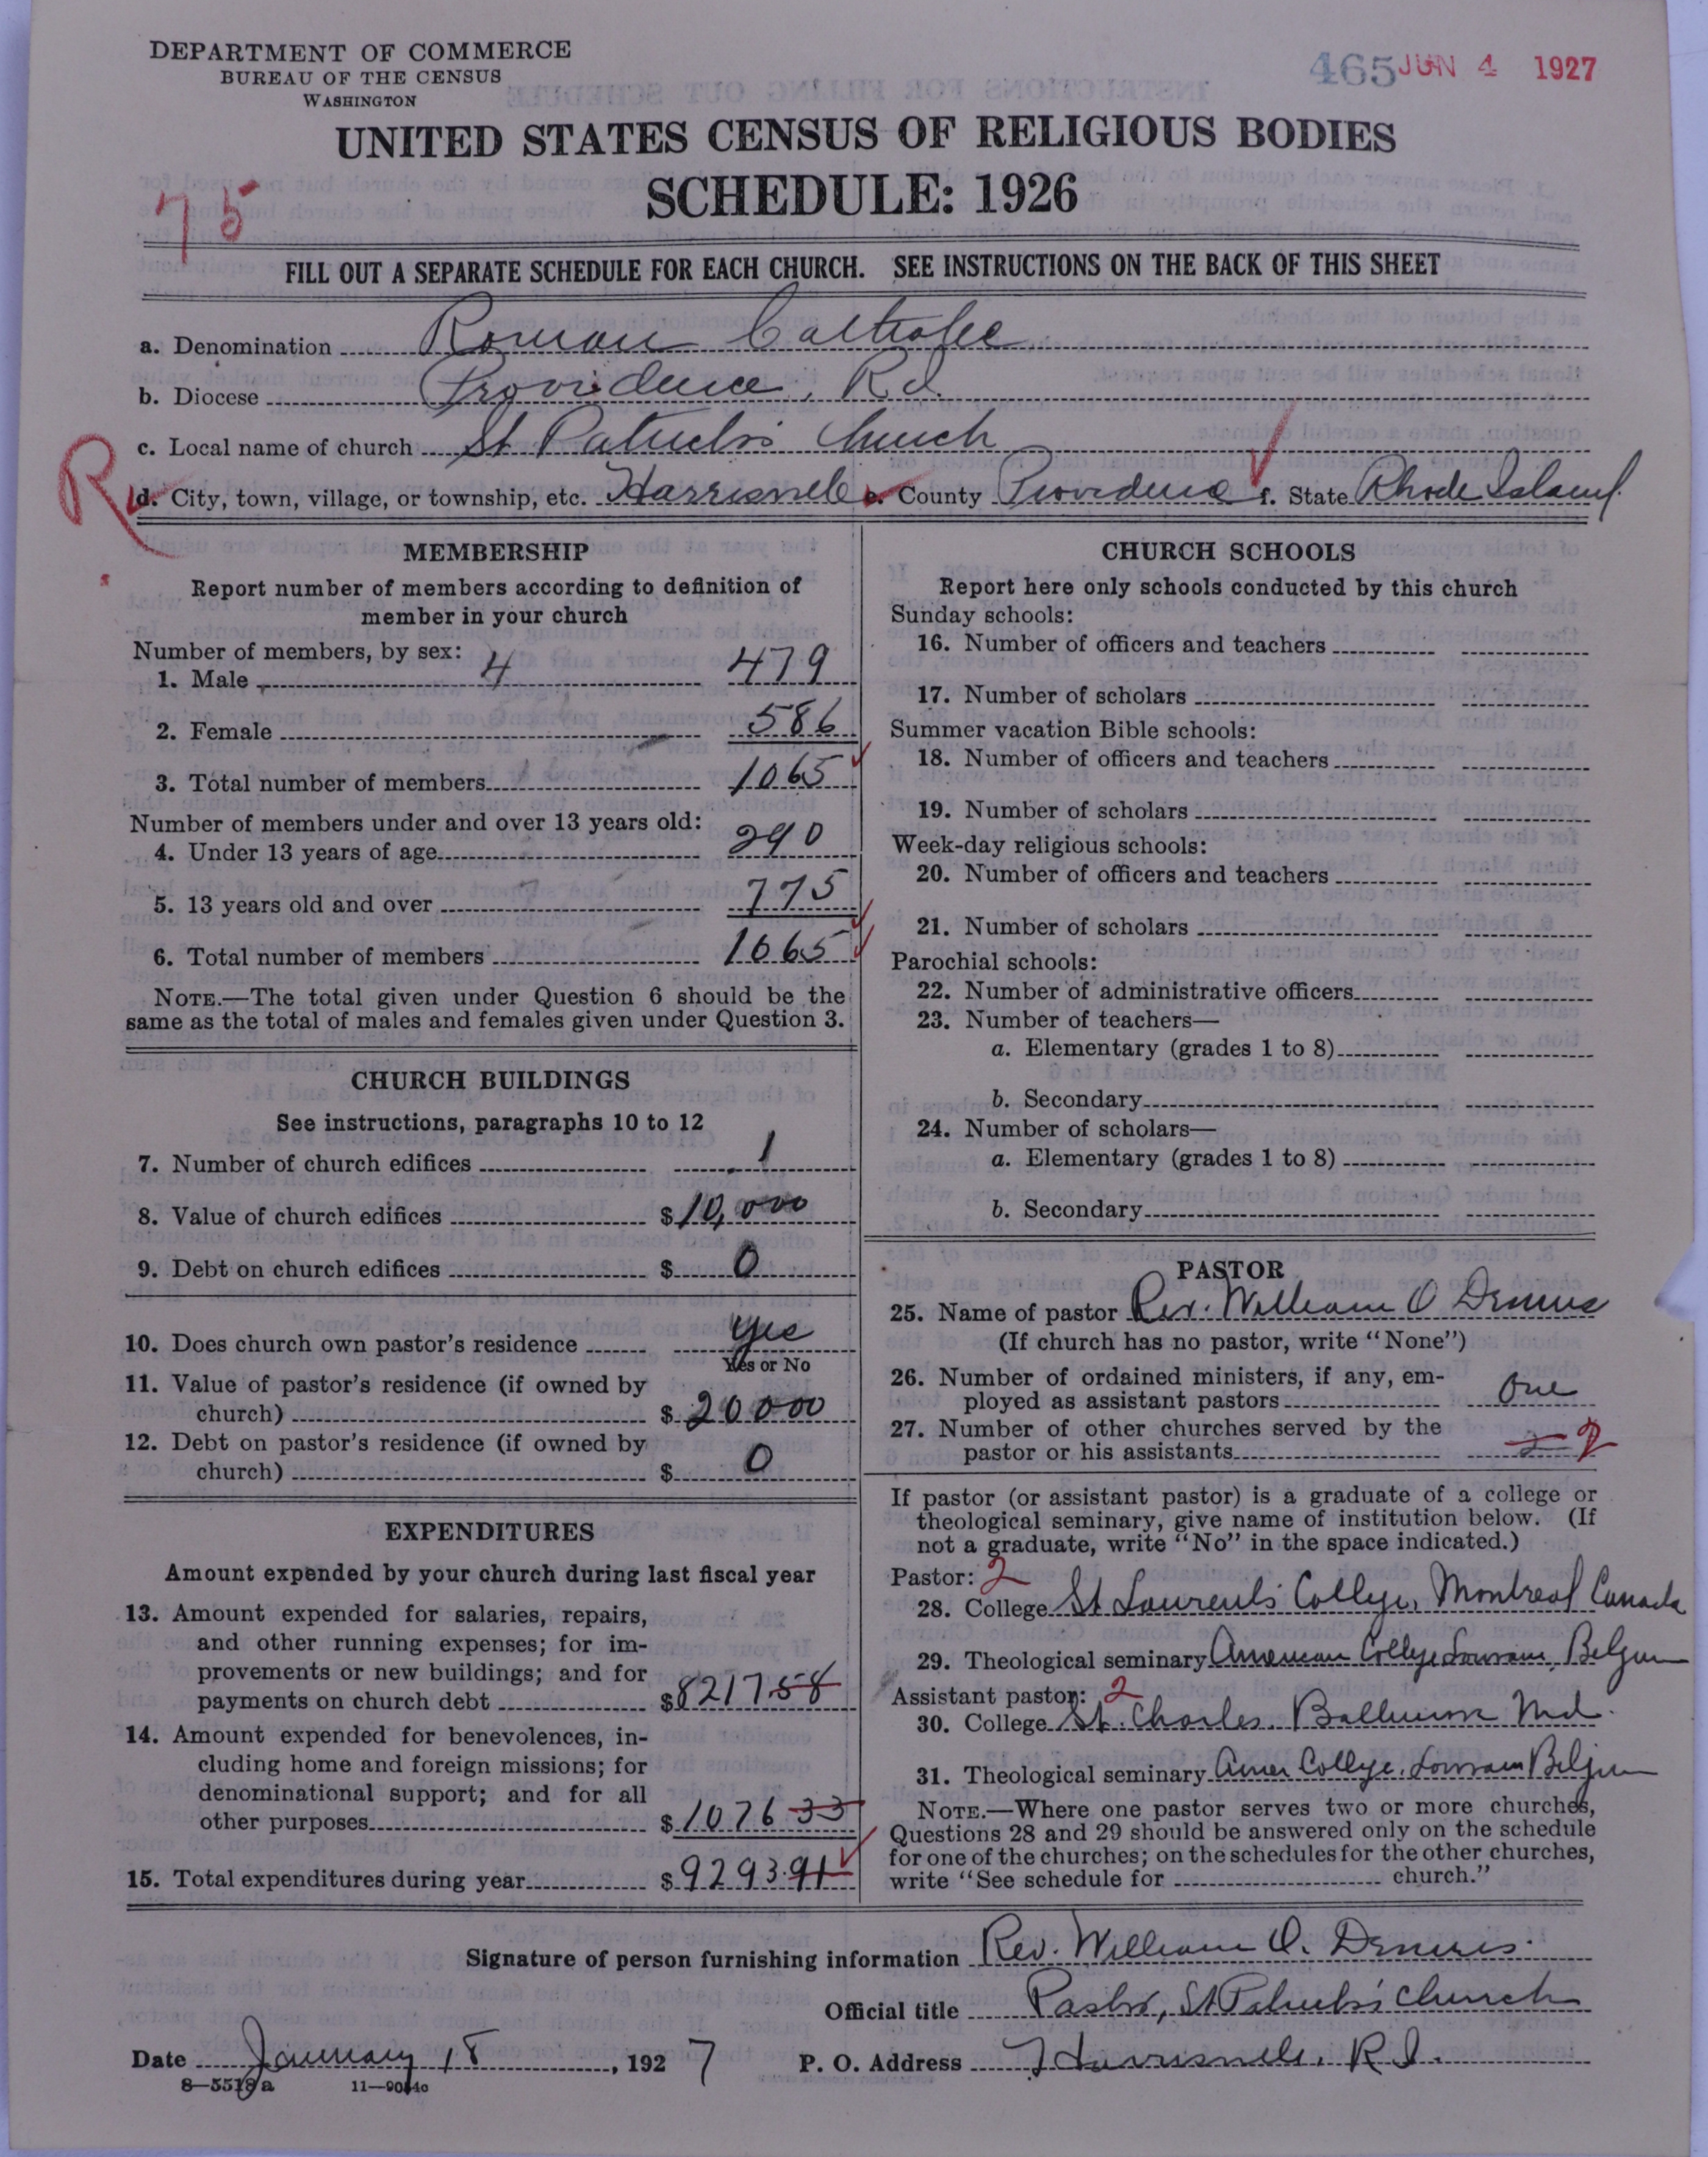 DEPARTMENT OF COMMERCE
BUREAU OF THE CENSUS
WASHINGTON
465 JUN 4 1927
UNITED STATES CENSUS OF RELIGIOUS BODIES
SCHEDULE: 1926
75
FILL OUT A SEPARATE SCHEDULE FOR EACH CHURCH. SEE INSTRUCTIONS ON THE BACK OF THIS SHEET
a. Denomination Roman Catholic
b. Diocese Providence, R.I.
c. Local name of church St Patrick's Church
R
d. City, town, village, or township, etc. Harrisville e. County Providence f. State Rhode Island
MEMBERSHIP
Report number of members according to definition of
member in your church
Number of members, by sex:
1. Male 4 479
2. Female 586
3. Total number of members 1065
Number of members under and over 13 years old:
4. Under 13 years of age 290
5. 13 years old and over 775
6. Total number of members 1065
NOTE.—The total given under Question 6 should be the
same as the total of males and females given under Question 3.
CHURCH BUILDINGS
See instructions, paragraphs 10 to 12
7. Number of church edifices 1
8. Value of church edifices $10,000
9. Debt on church edifices $ 0
10. Does church own pastor's residence Yes
Yes or No
11. Value of pastor's residence (if owned by
church) $ 20000
12. Debt on pastor's residence (if owned by
church) $ 0
EXPENDITURES
Amount expended by your church during last fiscal year
13. Amount expended for salaries, repairs,
and other running expenses; for im-
provements or new buildings; and for
payments on church debt $8217 58
14. Amount expended for benevolences, in-
cluding home and foreign missions; for
denominational support; and for all
other purposes $1076 33
15. Total expenditures during year $9293.91
CHURCH SCHOOLS
Report here only schools conducted by this church
Sunday schools:
16. Number of officers and teachers
17. Number of scholars
Summer vacation Bible schools:
18. Number of officers and teachers
19. Number of scholars
Week-day religious schools:
20. Number of officers and teachers
21. Number of scholars
Parochial schools:
22. Number of administrative officers
23. Number of teachers—
a. Elementary (grades 1 to 8)
b. Secondary
24. Number of scholars—
a. Elementary (grades 1 to 8)
b. Secondary
PASTOR
25. Name of pastor Rev. William O Dennis
(If church has no pastor, write "None")
26. Number of ordained ministers, if any, em-
ployed as assistant pastors One
27. Number of other churches served by the
pastor or his assistants 2
If pastor (or assistant pastor) is a graduate of a college or
theological seminary, give name of institution below. (If
not a graduate, write "No" in the space indicated.)
Pastor: 2
28. College St Laurent's College, Montreal Canada
29. Theological seminary American College Louvain, Belgium
Assistant pastor: 2
30. College St. Charles, Baltimore Md.
31. Theological seminary Amer College, Louvain Belgium
NOTE.—Where one pastor serves two or more churches,
Questions 28 and 29 should be answered only on the schedule
for one of the churches; on the schedules for the other churches,
write "See schedule for church."
Signature of person furnishing information Rev. William O. Dennis
Official title Pastor, St Patrick's Church
Date January 18, 1927 P. O. Address Harrisville, R.I.
8—5518a 11—9044c